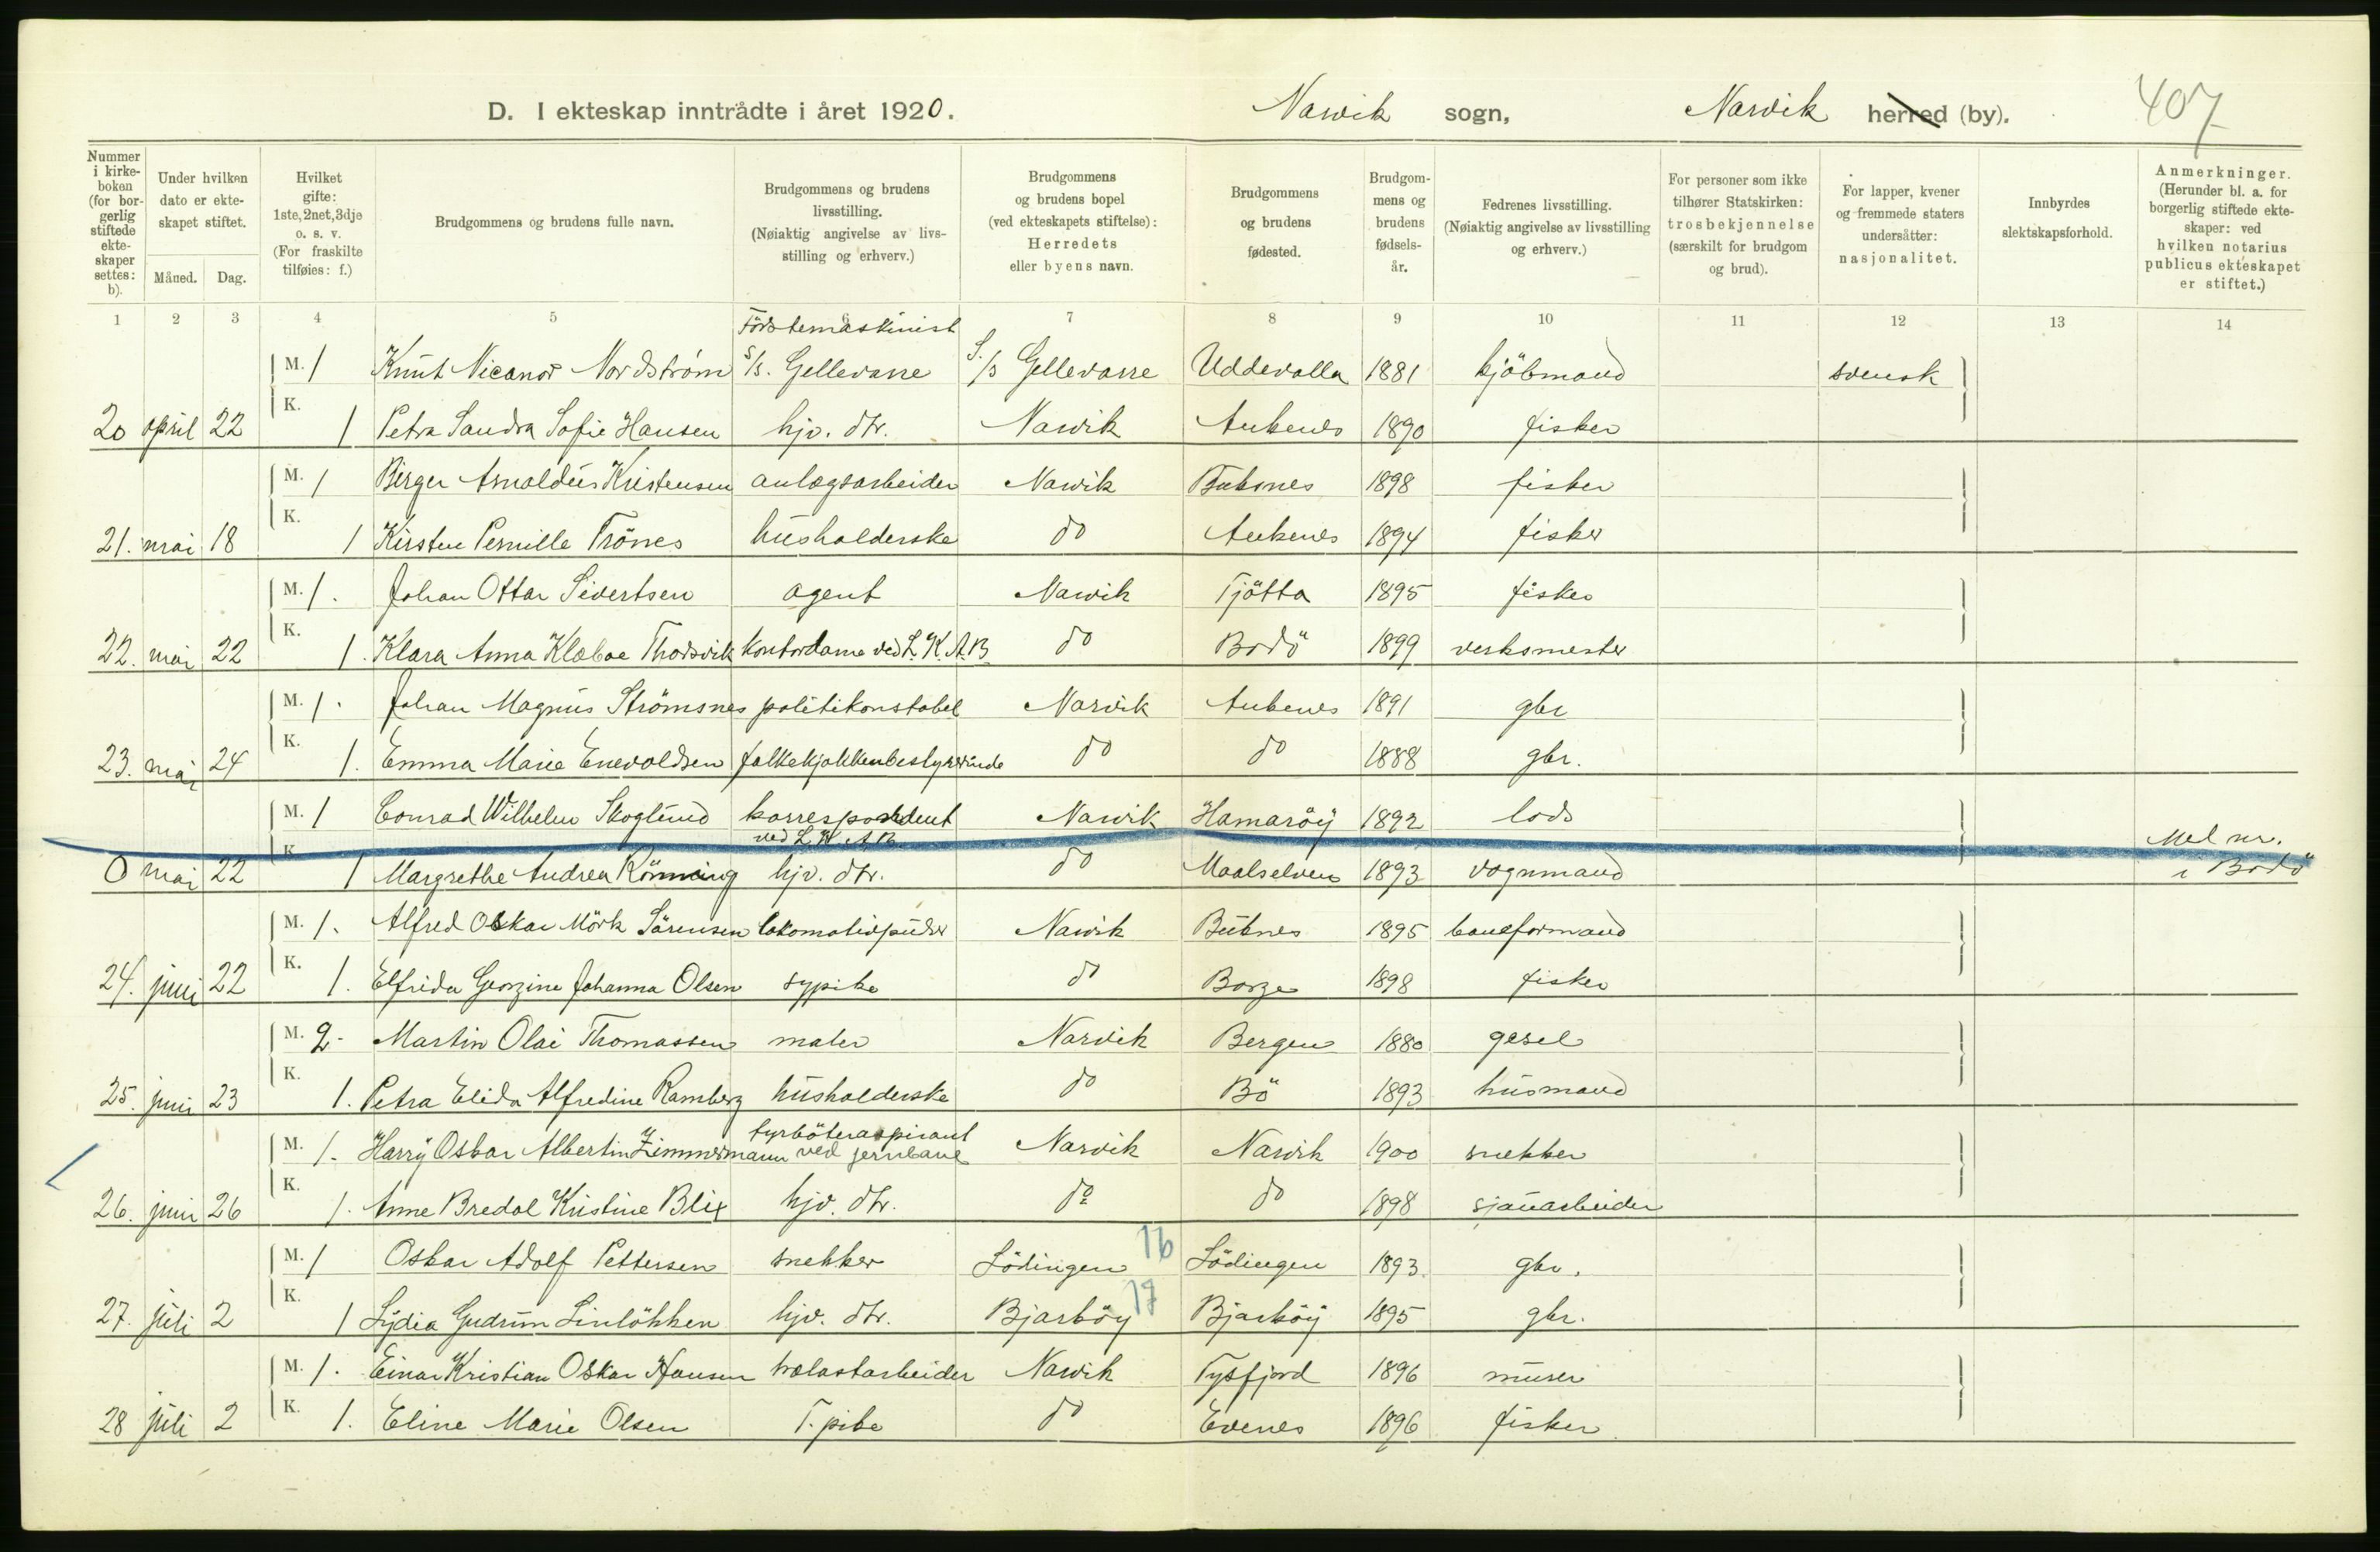 D. I ekteskap inntrådte i året 1920.
Narvik sogn,
Narvik herred (by).
407
Nummer i kirke-boken (for bor-gerlig stiftede ekte-skaper settes: b).
Under hvilken dato er ekte-skapet stiftet.
Måned. Dag.
Hvilket gifte: 1ste, 2net, 3dje o. s. v. (For fraskilte tilføies: f.)
Brudgommens og brudens fulle navn.
Brudgommens og brudens livsstilling. (Nøiaktig angivelse av livs-stilling og erhverv.)
Brudgommens og brudens bopel (ved ekteskapets stiftelse): Herredets eller byens navn.
Brudgommens og brudens fødested.
Brudgom-mens og brudens fødsels-år.
Fedrenes livsstilling. (Nøiaktig angivelse av livsstilling og erhverv.)
For personer som ikke tilhører Statskirken: trosbekjennelse (særskilt for brudgom og brud).
For lapper, kvener og fremmede staters undersåtter: nasjonalitet.
Innbyrdes slektskapsforhold.
Anmerkninger. (Herunder bl. a. for borgerlig stiftede ekte-skaper: ved hvilken notarius publicus ekteskapet er stiftet.)
1 2 3 4 5 6 7 8 9 10 11 12 13 14
Förstemaskinist
M. 1 Knut Nicanor Nordström S/s. Gellevarre S./s Gellevarre Uddevalla 1881 kjöbmand svensk
20 april 22 K. 1 Petra Sandra Sofie Hansen hjv. dtr. Narvik Ankenes 1890 fisker
M. 1 Birger Arnoldus Kristensen anlægsarbeider Narvik Buksnes 1898 fisker
21. mai 18 K. 1 Kirsten Pernille Trönes husholderske do Ankenes 1894 fisker
M. 1. Johan Ottar Sivertsen agent Narvik Tjötta 1895 fisker
22. mai 22 K. 1. Klara Anna Klæboe Thorsvik kontordame ved L. K. A. B. do Bodö 1899 verksmester
M. 1. Johan Magnus Strömsnes politikonstabel Narvik Ankenes 1891 gbr
23. mai 24 K. 1. Emma Marie Enevoldsen folkekjøkkenbestyrerinde do do 1888 gbr.
M. 1 Conrad Wilhelm Skoglund korrespondent Narvik Hamaröy 1892 lods
ved L. K. A. B. Mel nr.
0 mai 22 K. 1 Margrethe Andrea Rönning hjv. dtr. do Maalselven 1893 vognmand i Bodö
M. 1. Alfred Oskar Mörk Sörensen lokomotivpudser Narvik Buknes 1895 baneformand
24. juni 22 K. 1. Elfrida Georgine Johanna Olsen sypike do Borge 1898 fisker
M. 2. Martin Olai Thomassen maler Narvik Bergen 1880 gesel
25. juni 23 K. 1. Petra Elida Alfredine Ramberg husholderske do Bö 1893 husmand
fyrböteraspirant
M. 1. Harry Oskar Albertin Zimmermann ved jernbane Narvik Narvik 1900 snekker
26. juni 26 K. 1. Anne Bredal Kristine Blix hjv. dtr. do do 1898 sjauarbeider
16
M. 1 Oskar Adolf Pettersen snekker Lödingen Lödingen 1893 gbr.
17
27. juli 2 K. 1 Lydia Gudrun Linlökken hjv. dtr. Bjarköy Bjarköy 1895 gbr.
M. 1. Einar Kristian Oskar Hansen trælastarbeider Narvik Tysfjord 1896 murer
28 juli 2 K. 1. Eline Marie Olsen T. pike do Evenes 1896 fisker